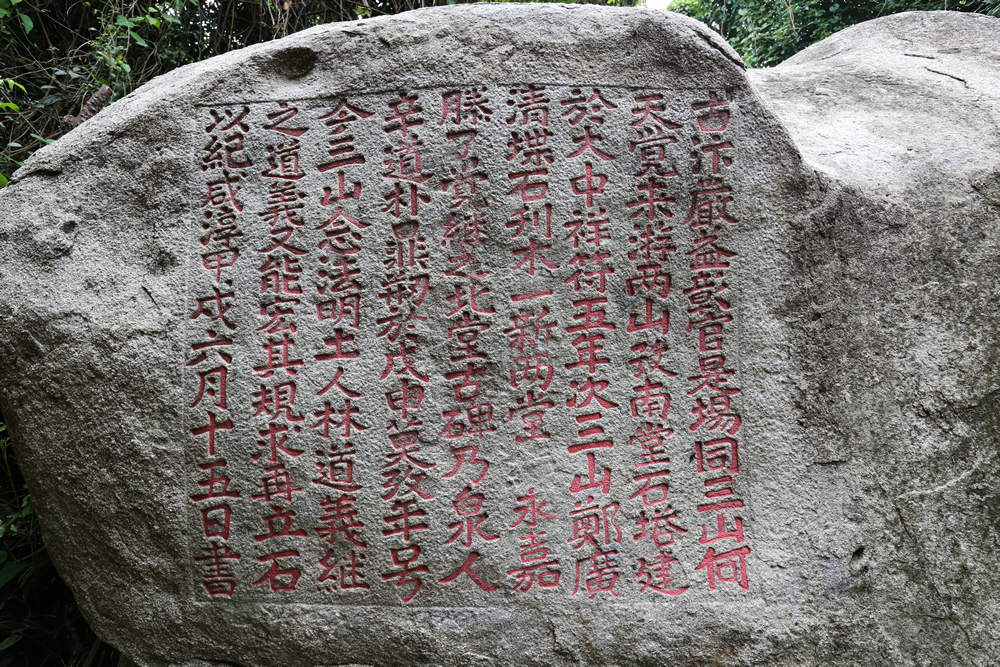 古汴嚴益彰官是場同三山何
天覺來游兩山攷南堂石塔建
於大中祥符五年次三山鄭廣
清堞石刋木一新兩堂 永嘉
滕了覺繼之北堂古碑乃泉人
辛道朴鼎剏於戊申莫攷年號
今三山念法明土人林道義繼
之道義又能宏其規求再立石
以紀咸淳甲戌六月十五日書